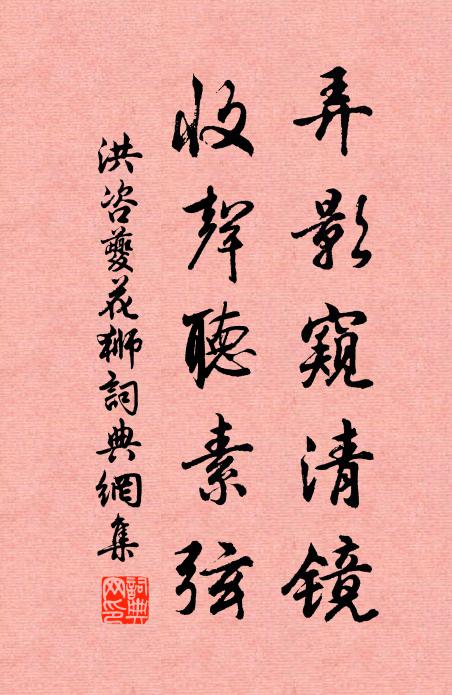 弄影窺清鏡
收聲聽素弦
洪咨夔花獅詞典網集
詞典
网印